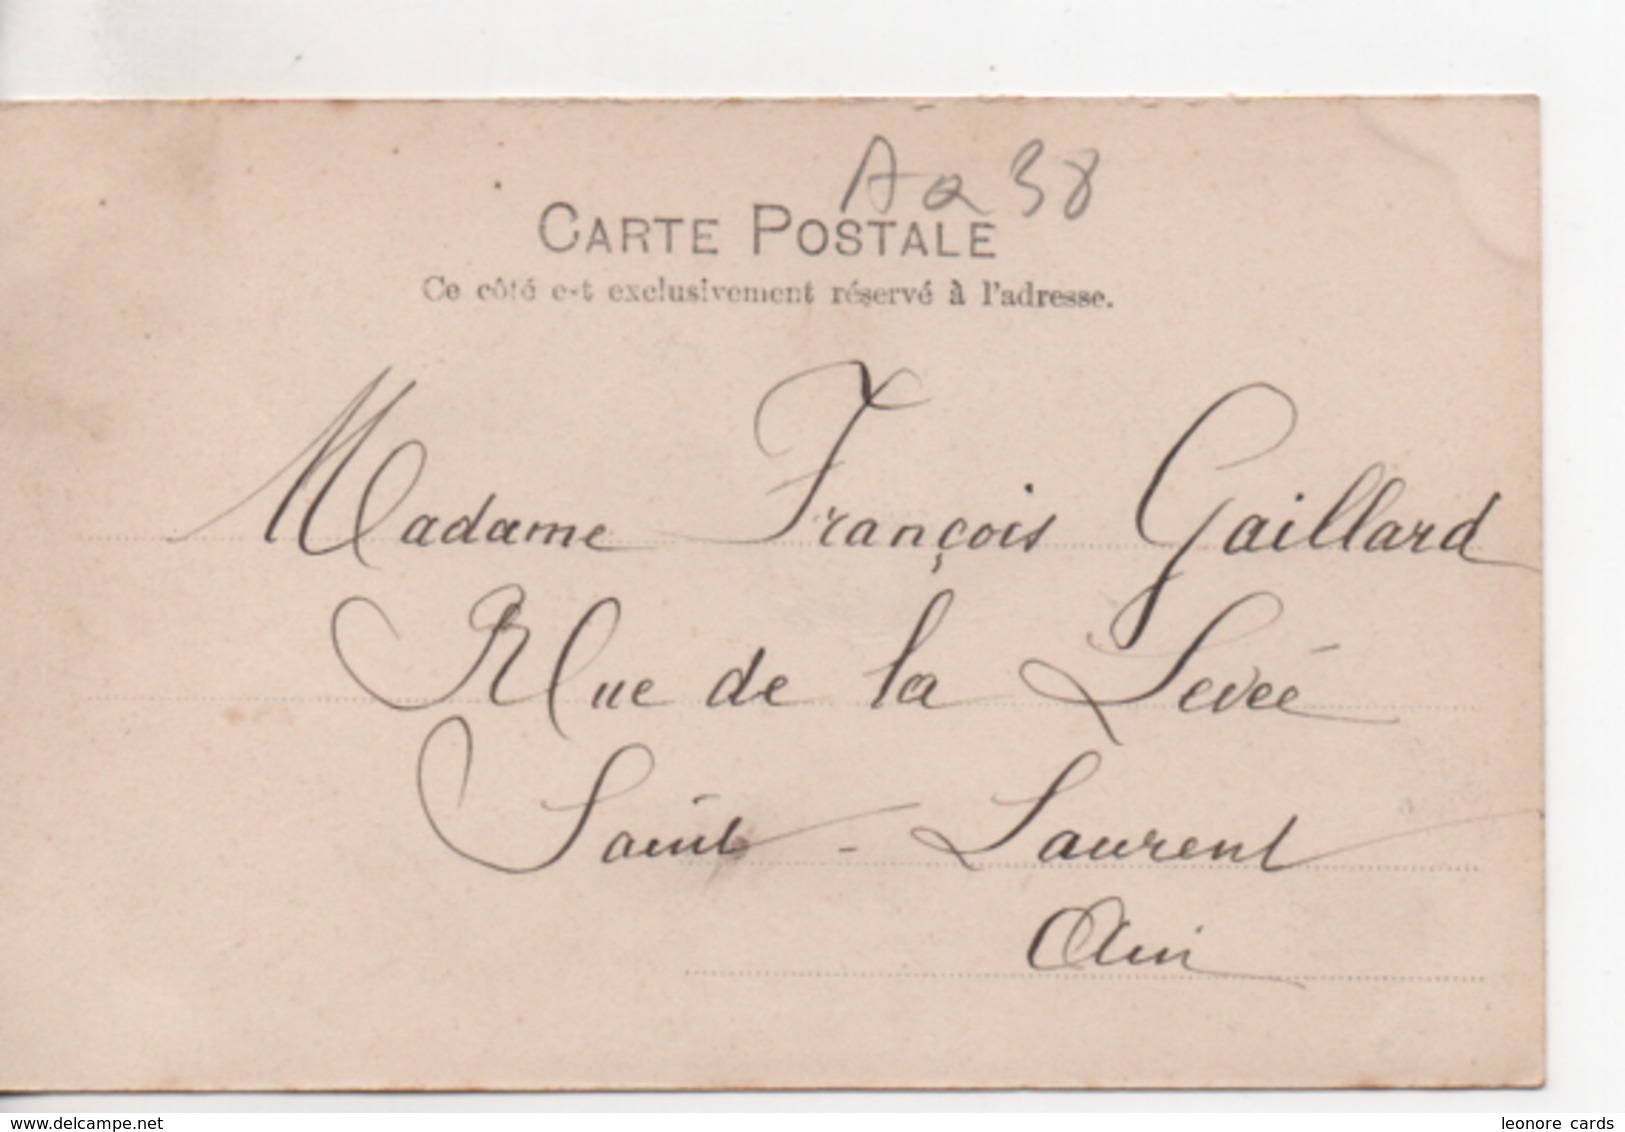 Aa 38
CARTE POSTALE
Ce côté est exclusivement réservé à l'adresse.
Madame François Gaillard
Rue de la Levée
Saint-Laurent
Ain
delcampe.net
leonore cards